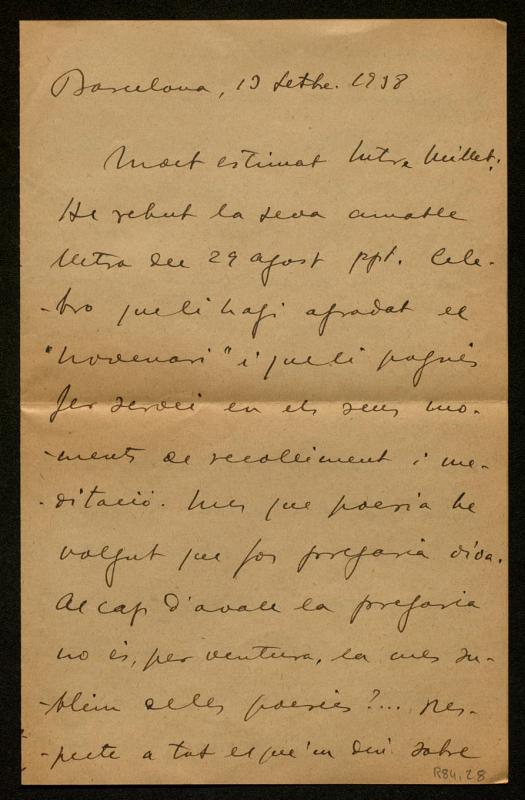 Barcelona, 13 Setbre. 1938
Molt estimat Mtre. Millet:
He rebut la seva amable
lletra del 29 agost ppt. Cele-
-bro que li hagi agradat el
"Novenari" i que li pogués
fer servei en els seus mo-
-ments de recolliment i me-
-ditació. Mes que poesia he
volgut que fos pregaria viva.
Al cap d'avall la pregaria
no és, per ventura, la mes su-
-blim de les poesies?... Res-
-pecte a tot el que'm diu sobre
R84,28